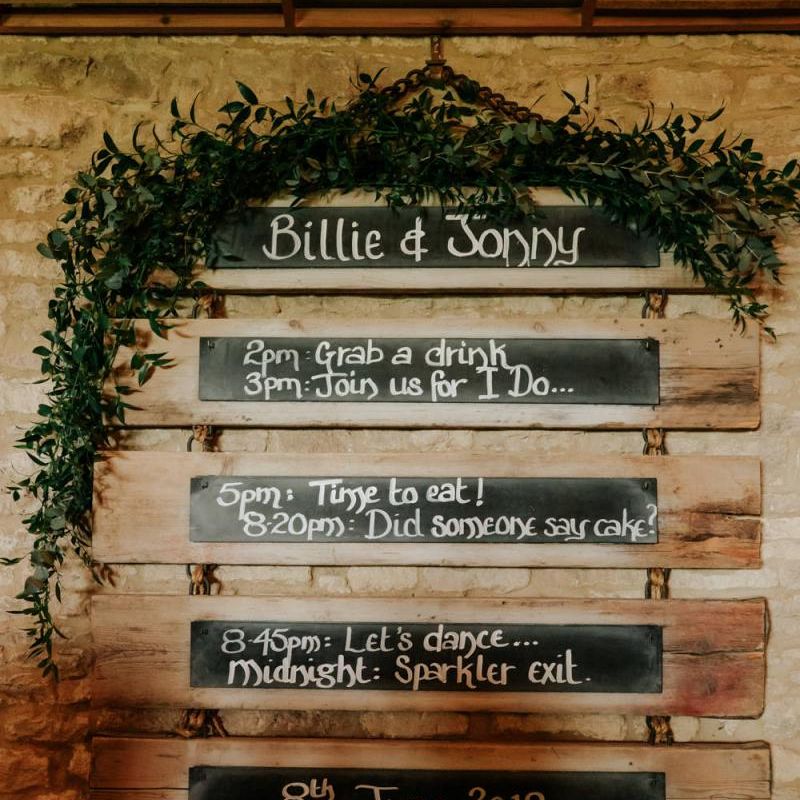 Billie & Jonny
2pm: Grab a drink
3pm: Join us for I Do...
5pm: Time to eat!
8·20pm: Did someone say cake?
8·45pm: Let's dance...
Midnight: Sparkler exit.
8th